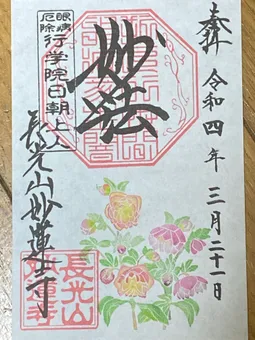 奉拝
令和四年三月二十一日
妙法
眼病
厄除
行学院日朝上人
長光山妙蓮寺
長光山
妙蓮寺